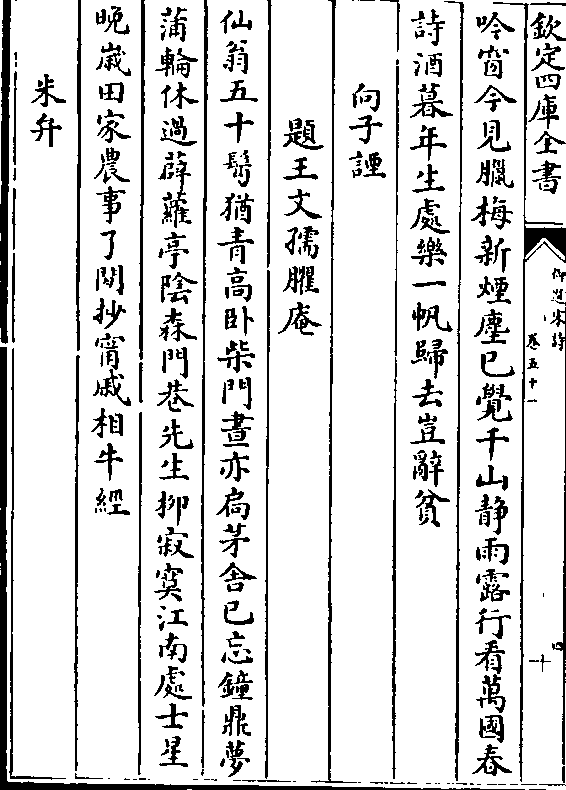 欽定四庫全書
御選宋詩
卷五十一
四十
吟窗今見臘梅新煙塵已覺千山静雨露行看萬國春
詩酒暮年生處樂一帆歸去豈辭貧
向子諲
題王文孺臞庵
仙翁五十鬂猶青高卧柴門晝亦扃茅舍已忘鐘鼎夢
蒲輪休過薜蘿亭陰森門巷先生柳寂寞江南處士星
晩嵗田家農事了閒抄甯戚相牛經
米弁